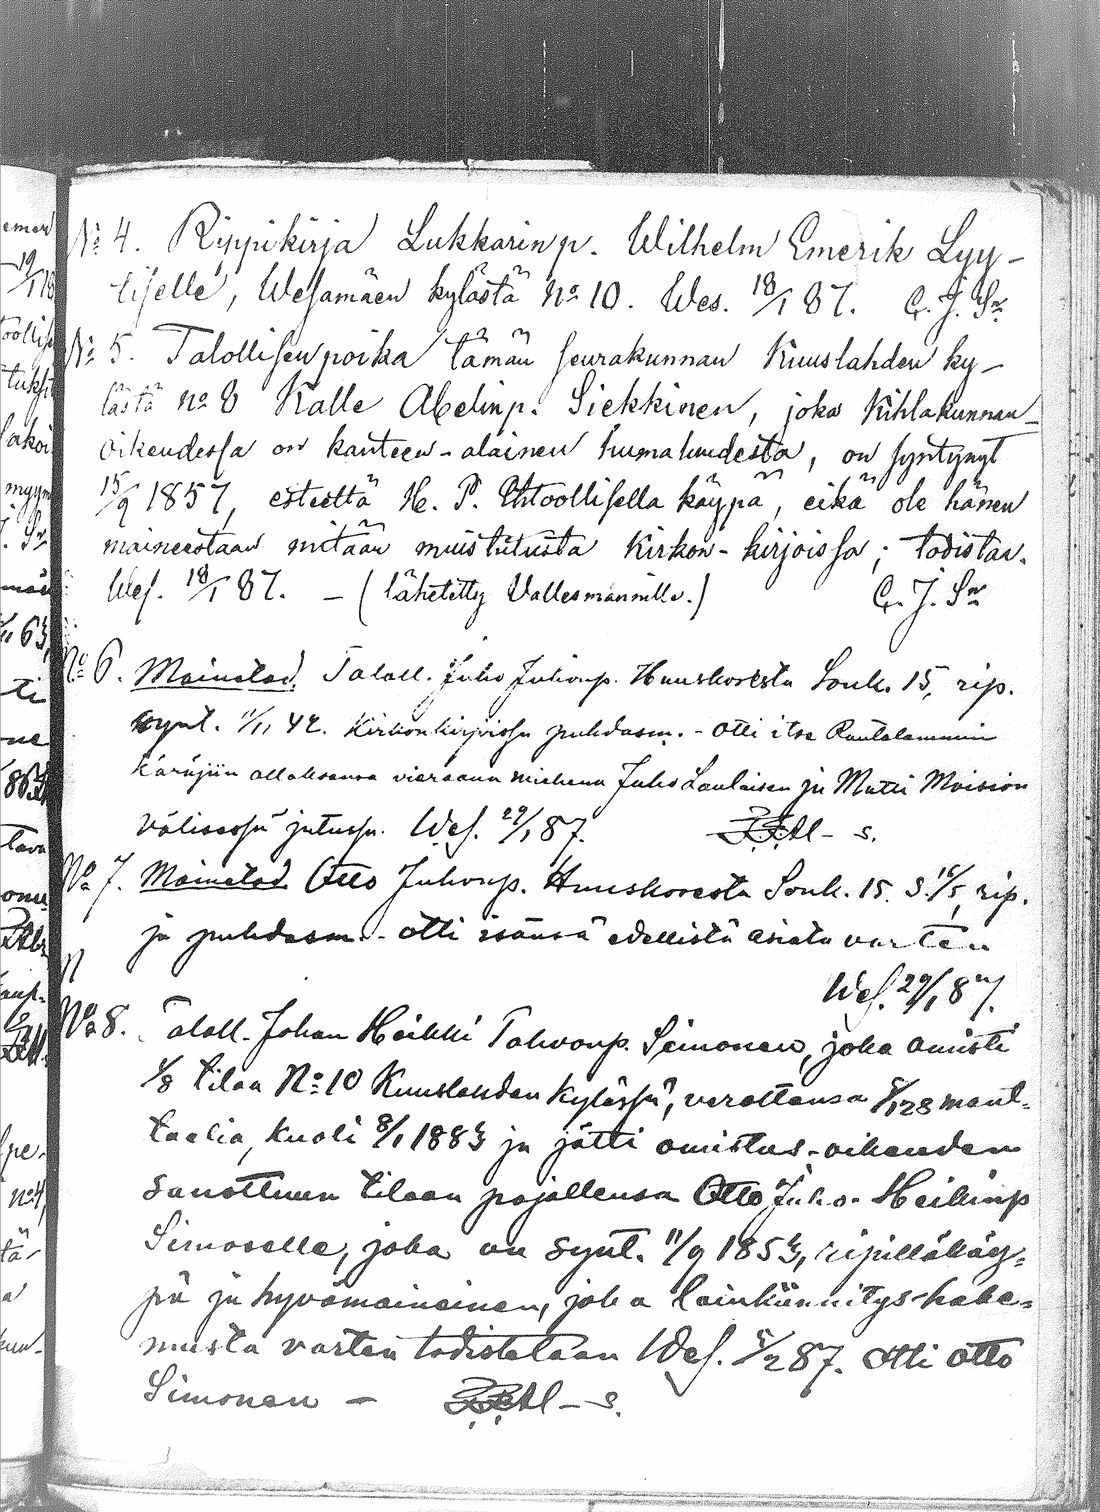 emen
19/1 18
toollise
tuksi
lakoi
myyn
J. Sn
63,
ti
ne
86
tava
omu
kaup-
spe-
no 4,
tä-
a
kuu-
No 4. Rippikirja Lukkarinp. Wilhelm Emerik Lyy-
tiselle, Wesamäen kylästä No 10. Wes. 18/1 87. C. J. Sn
No 5. Talollisenpoika tämän seurakunnan Kuuslahden ky-
lästä no 8 Kalle Abelinp. Siekkinen, joka Kihlakunnan-
oikeudessa on kanteen-alainen humaluudesta, on syntynyt
15/9 1857, esteettä H. P. Ehtoollisella käypä, eikä ole hänen
maineestaan mitään muistutusta Kirkon-kirjoissa; todistav.
Wes. 18/1 87. - (lähetetty Vallesmannille.) C. J. Sn
No 6. Mainetod. Taloll. Juho Juhonp. Huuskosesta Sonk. 15, rip.
synt. 11/11 42. Kirkonkirjoissa puhdasm. - Otti itse Rautalammin
Käräjiin ollaksensa vieraana miehenä Juho Laulaisen ja Matti Moision
välisessä jutussa. Wes. 29/1 87. - s.
No 7. Mainetod. Otto Juhonp. Huuskosesta Sonk. 15. S. 16/5, rip.
ja puhdasm. - otti isänsä edellistä asiata varten
Wes. 29/1 87.
N
No 8. Taloll. Johan Heikki Tahvonp. Simonen, joka omisti
1/8 tilaa No 10 Kuuslahden kylässä, verottansa 5/128 mant-
taalia, kuoli 8/1 1883 ja jätti omistus-oikeuden
sanottuun tilaan pojallensa Otto Juho Heikinp
Simoselle, joka on synt. 11/9 1853, ripilläkäy-
pä ja hyvämaineinen, joka lainkiinnitys-hake-
musta varten todistetaan Wes. 5/2 87. Otti Otto
Simonen - - s.